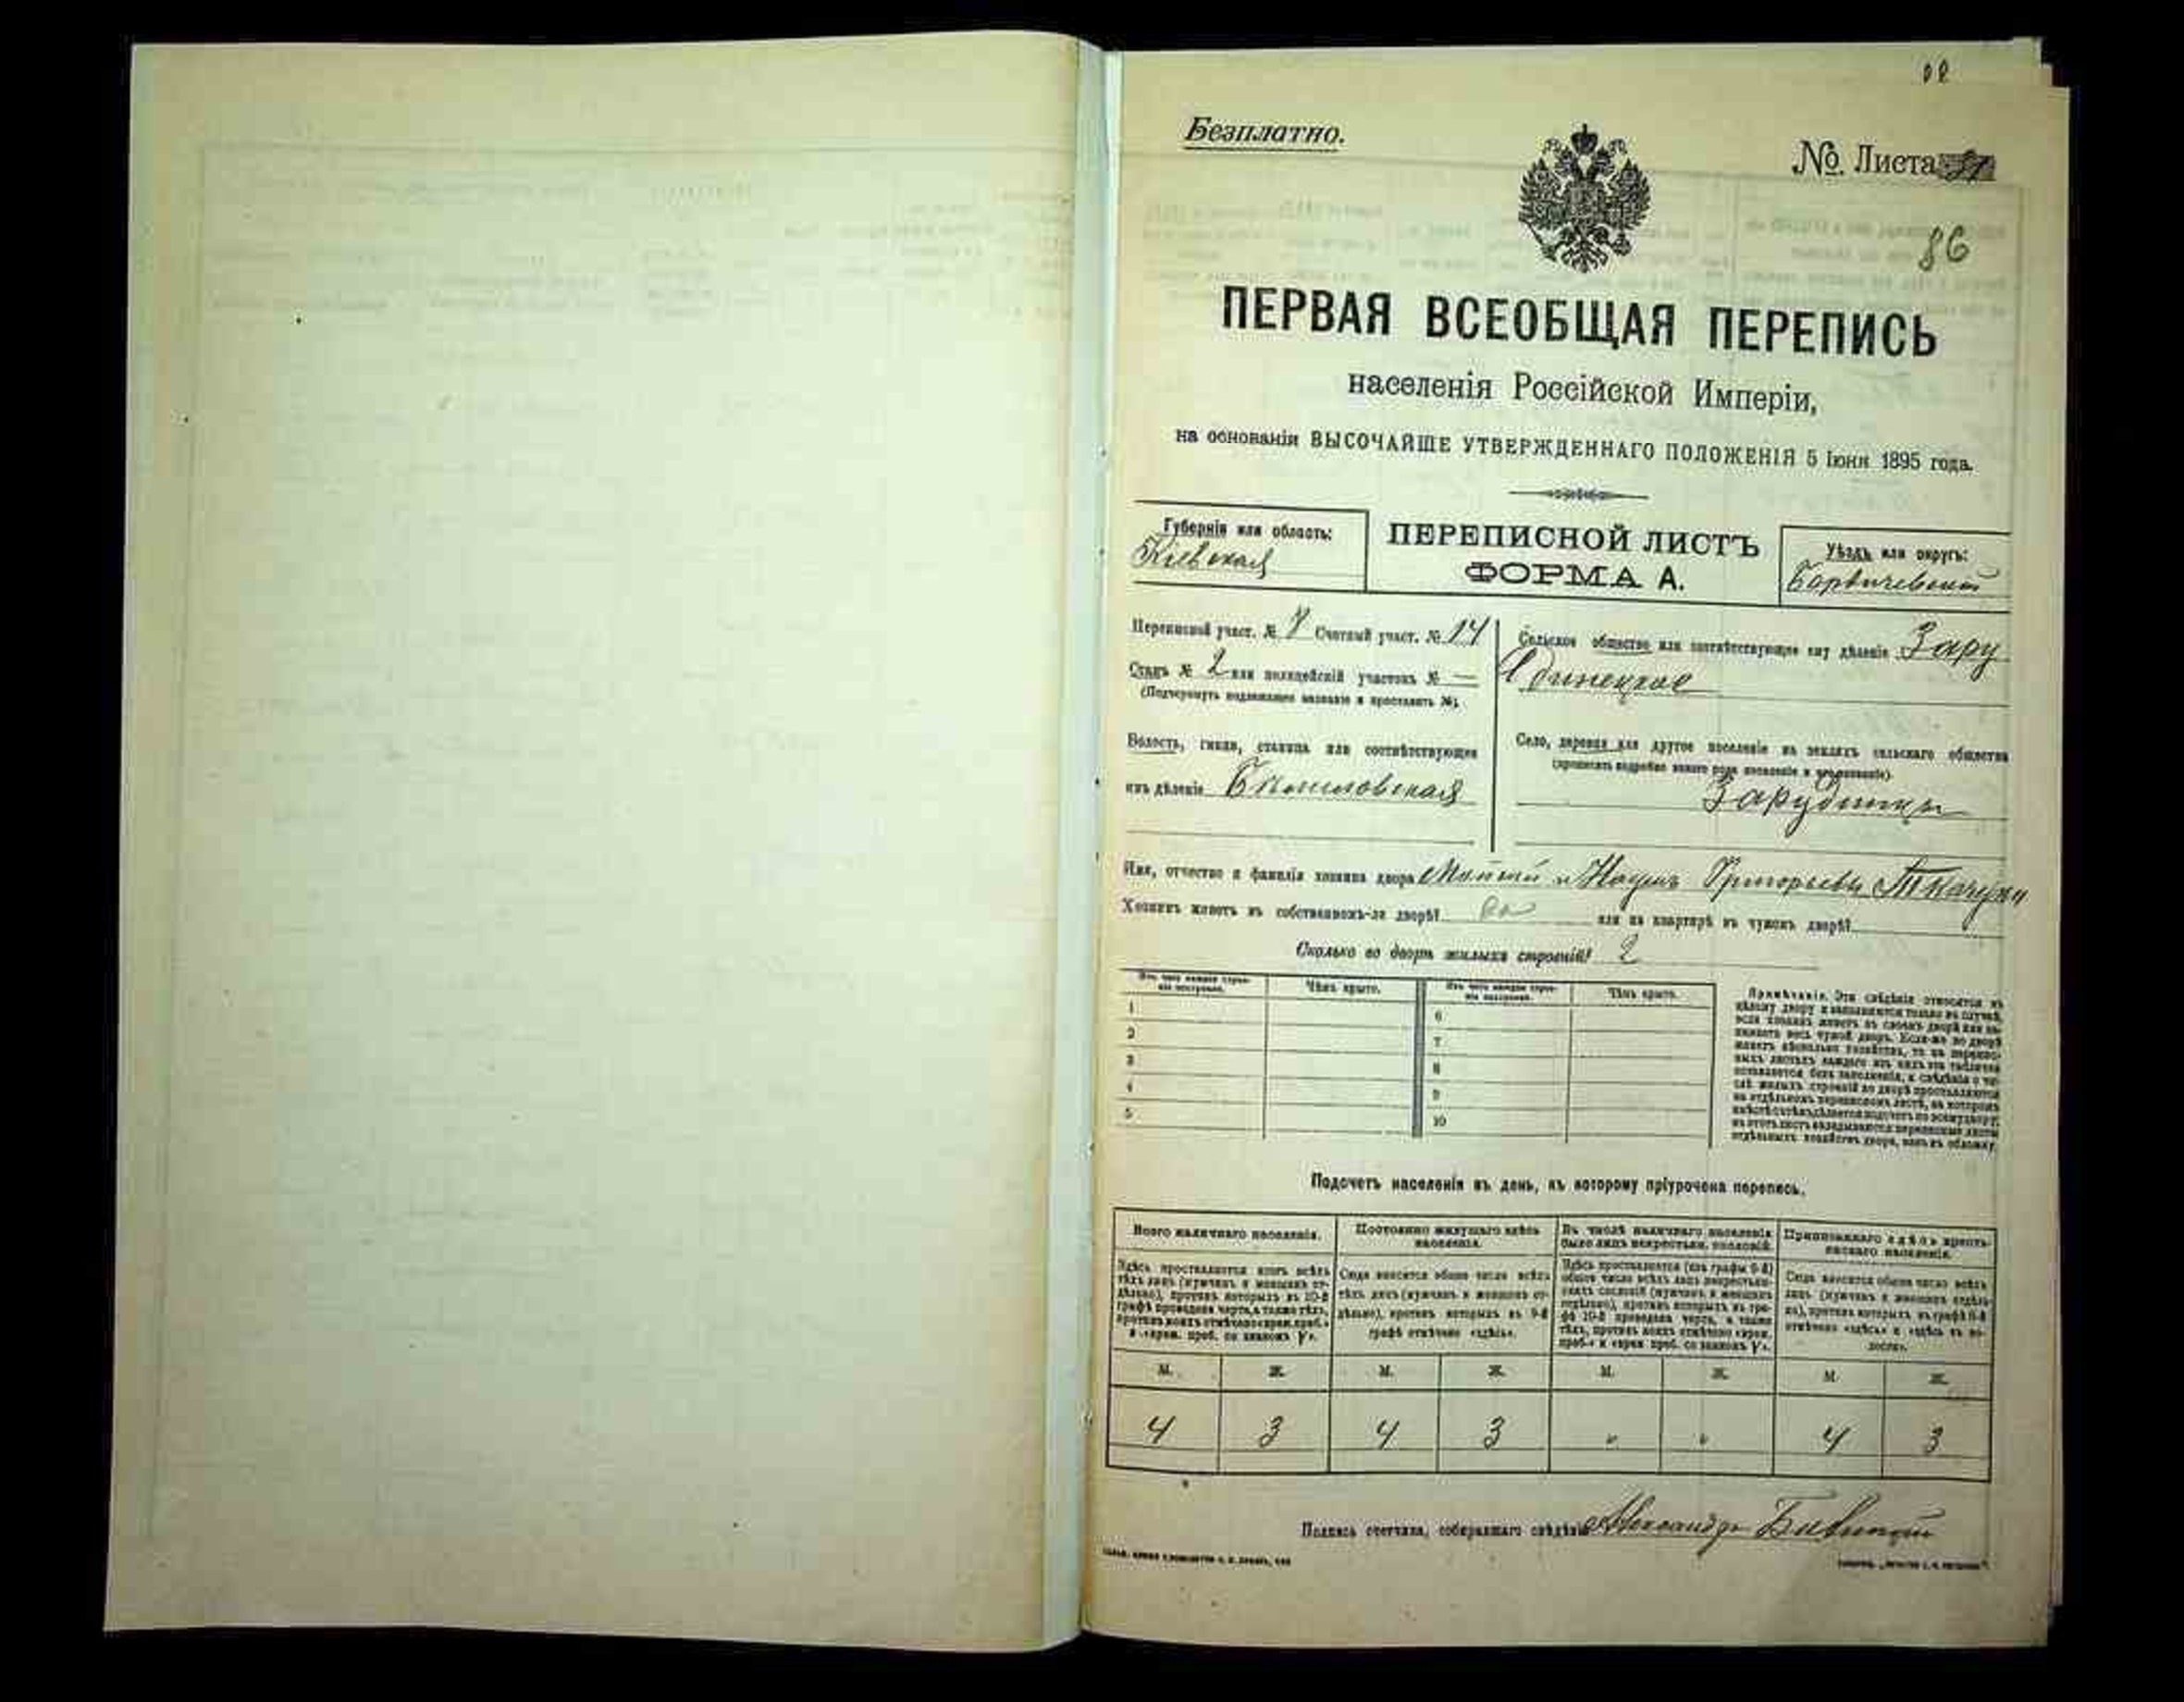 Безплатно.
№ Листа
86
ПЕРВАЯ ВСЕОБЩАЯ ПЕРЕПИСЬ
населенія Россійской Имперіи,
на основаніи ВЫСОЧАЙШЕ УТВЕРЖДЕННАГО ПОЛОЖЕНІЯ 5 Іюня 1895 года.
Губернія или область:
Кіевская
ПЕРЕПИСНОЙ ЛИСТЪ
ФОРМА А.
Уѣздъ или округъ:
Бердичевский
Переписной участ. № 7 Счетный участ. № 14
Станъ № 2 или полицейскій участокъ № —
(Подчеркнуть подлежащее названіе и проставить №)
Волость, гмина, станица или соотвѣтствующее
имъ дѣленіе
Сельское общество или соотвѣтствующее ему дѣленіе Зару
динецкое
Село, деревня или другое поселеніе на земляхъ сельскаго общества
(прописать подробно какого рода поселеніе и его названіе)
Зарудинцы
Имя, отчество и фамилія хозяина двора и Наумъ Григорьевы Ткачуки
Хозяинъ живетъ въ собственномъ-ли дворѣ? да или на квартирѣ въ чужомъ дворѣ?
Сколько во дворѣ жилыхъ строеній? 2
Изъ чего каждое строеніе построено.
Чѣмъ крыто.
Изъ чего каждое строеніе построено.
Чѣмъ крыто.
1
2
3
4
5
6
7
8
9
10
Примѣчаніе. Эти свѣдѣнія относятся къ
цѣлому двору и заполняются только въ случаѣ,
если хозяинъ живетъ въ своемъ дворѣ или за-
нимаетъ весь чужой дворъ. Если-же во дворѣ
живетъ нѣсколько хозяйствъ, то на перепис-
ныхъ листахъ каждаго изъ нихъ эта табличка
оставляется безъ заполненія, а свѣдѣнія о чи-
слѣ жилыхъ строеній во дворѣ проставляются
на отдѣльномъ переписномъ листѣ, на которомъ
вмѣстѣ съ тѣмъ дѣлается подсчетъ по всему двору;
въ этотъ листъ вкладываются переписные листы
отдѣльныхъ хозяйствъ двора, какъ въ обложку.
Подсчетъ населенія въ день, къ которому пріурочена перепись.
Всего наличнаго населенія.
Постоянно живущаго здѣсь
населенія.
Въ числѣ наличнаго населенія
было лицъ некрестьян. сословій.
Приписаннаго здѣсь кресть-
янскаго населенія.
Здѣсь проставляется итогъ всѣхъ
тѣхъ лицъ (мужчинъ и женщинъ от-
дѣльно), противъ которыхъ въ 10-й
графѣ проведена черта, а также тѣхъ,
противъ коихъ отмѣчено «врем. преб.»
и «врем. преб. со знакомъ V».
Сюда вносится общее число всѣхъ
тѣхъ лицъ (мужчинъ и женщинъ от-
дѣльно), противъ которыхъ въ 9-й
графѣ отмѣчено «здѣсь».
Здѣсь проставляется (изъ графы 9-й)
общее число всѣхъ лицъ некрестьян-
скихъ сословій (мужчинъ и женщинъ
отдѣльно), противъ которыхъ въ гра-
фѣ 10-й проведена черта, а также
тѣхъ, противъ коихъ отмѣчено «врем.
преб.» и «врем. преб. со знакомъ V».
Сюда вносится общее число всѣхъ
лицъ (мужчинъ и женщинъ отдѣль-
но), противъ которыхъ въ графѣ 8-й
отмѣчено «здѣсь» и «здѣсь въ во-
лости».
М. Ж. М. Ж. М. Ж. М. Ж.
4 3 4 3 „ „ 4 3
Подпись счетчика, собиравшаго свѣдѣнія Александръ